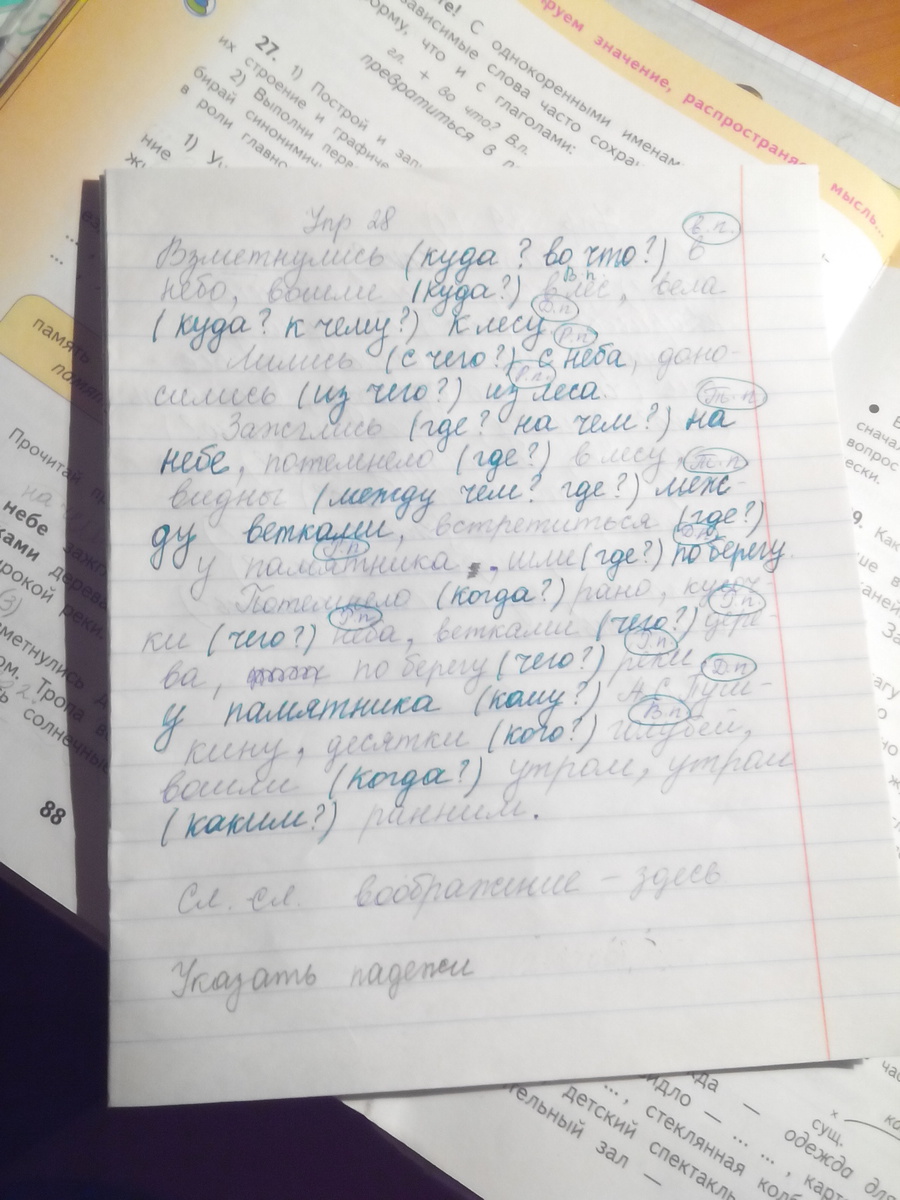 руем значение, распространяе
мысль...
те! С однокоренными именам
зависимые слова часто сохра
орму, что и с глаголами:
гл. + во что? В.п.
превратиться в
27. 1) Построй и зап
их строение и графиче
2) Выполни пер
бирай синоними
в роли главно
1) У
ние
Упр 28
В.п.
Взметнулись (куда? во что?) в
В п
небо, вошли (куда?) в лес, вела
Д.п
(куда? к чему?) к лесу
Р.п
Лились (с чего?) с неба, доно-
Р.п.
сились (из чего?) из леса.
Т.п
Зажглись (где? на чем?) на
небе, потемнело (где?) в лесу,
Т.п
видны (между чем? где?) меж-
ду ветками, встретиться (где?)
Р.п
Д.п
у памятника, шли (где?) по берегу.
Потемнело (когда?) рано,
Р.п
Р.п
ки (чего?) неба, ветками (чего?) дере-
Р.п
ва, по берегу (чего?) реки
Д.п
у памятника (кому?) А.С. Пуш-
В.п
кину, десятки (кого?) голубей,
вошли (когда?) утром, утром
(каким?) ранним.
Сл. сл. воображение – здесь
Указать падежи
память
Прочитай
небе зажг
ками дерева
ирокой реки.
зметнулись д
ом. Тропа в
ь солнечные
88
сначал
вопрос
ески.
9. Как
сущ.
идло — ... ..., одежда для
..., стеклянная кол
детский спектакль
тельный зал —